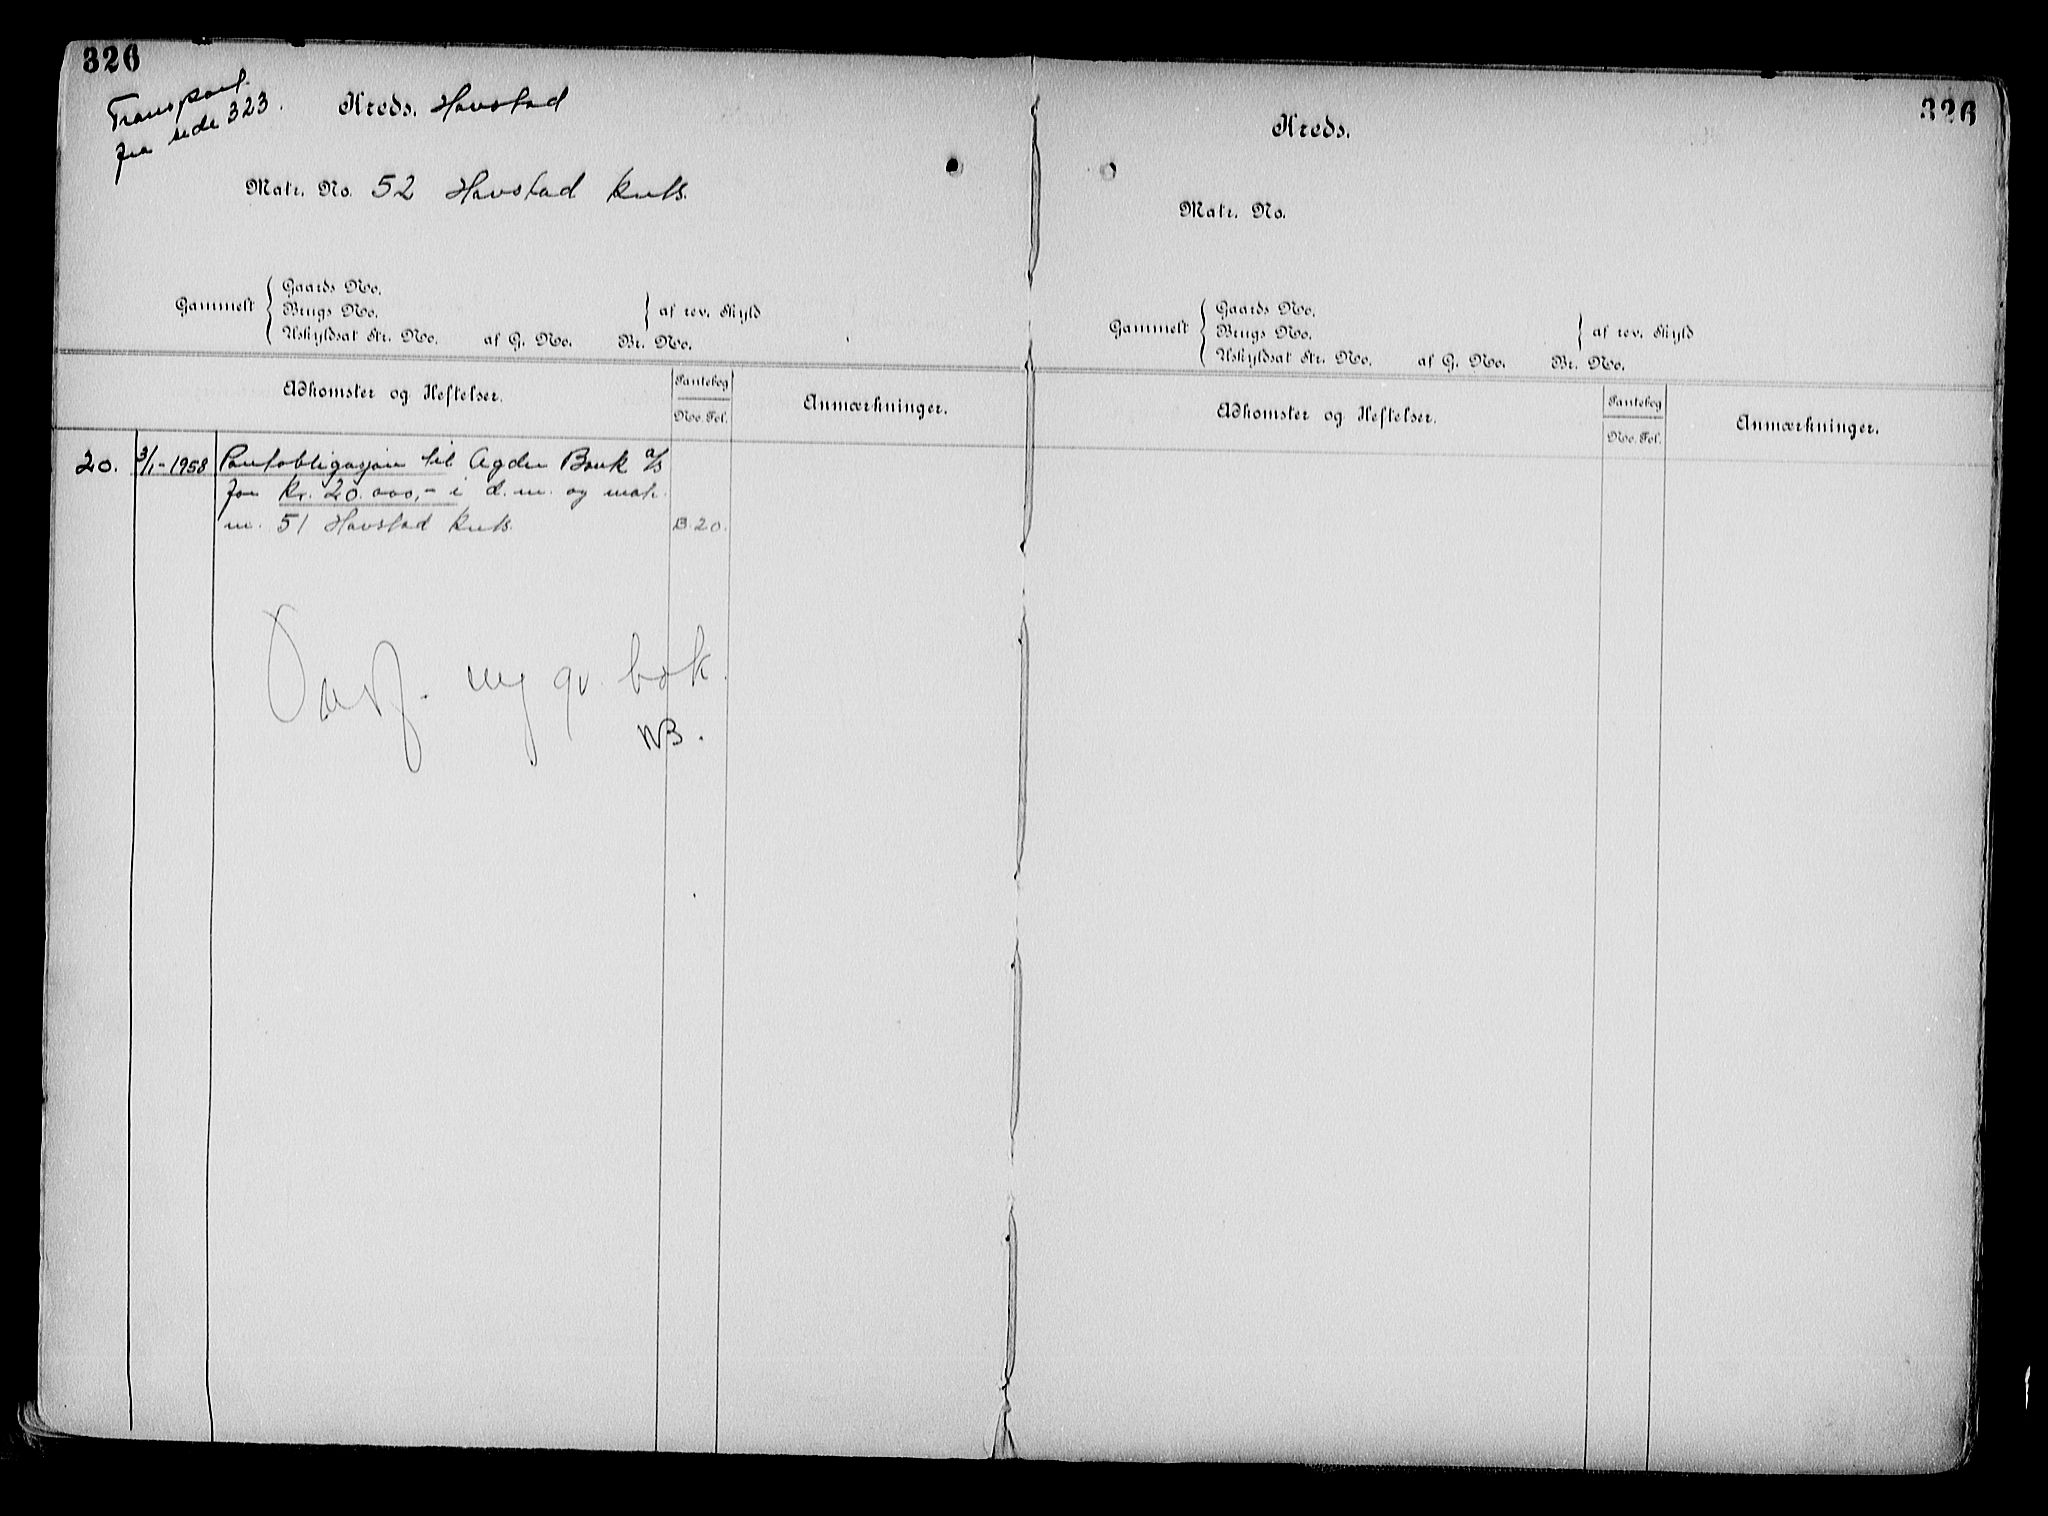 326
Transport
fra side 323.
Kreds. Havstad
Matr. No. 52 Havstad krets.
Gammelt
Gaards No.
Brugs No.
Uskyldsat Str. No. af G. No. Br. No.
af rev. Skyld
Adkomster og Heftelser.
Pantebog
No. Fol.
Anmærkninger.
20. 3/1-1958 Pantobligasjon til Agder Bank a/s
for kr. 20.000,- i d. m. og matr.
nr. 51 Havstad krets. B.20.
Overf. ny gr. bok.
NB.
326
Kreds.
Matr. No.
Gammelt
Gaards No.
Brugs No.
Uskyldsat Str. No. af G. No. Br. No.
af rev. Skyld
Adkomster og Heftelser.
Pantebog
No. Fol.
Anmærkninger.